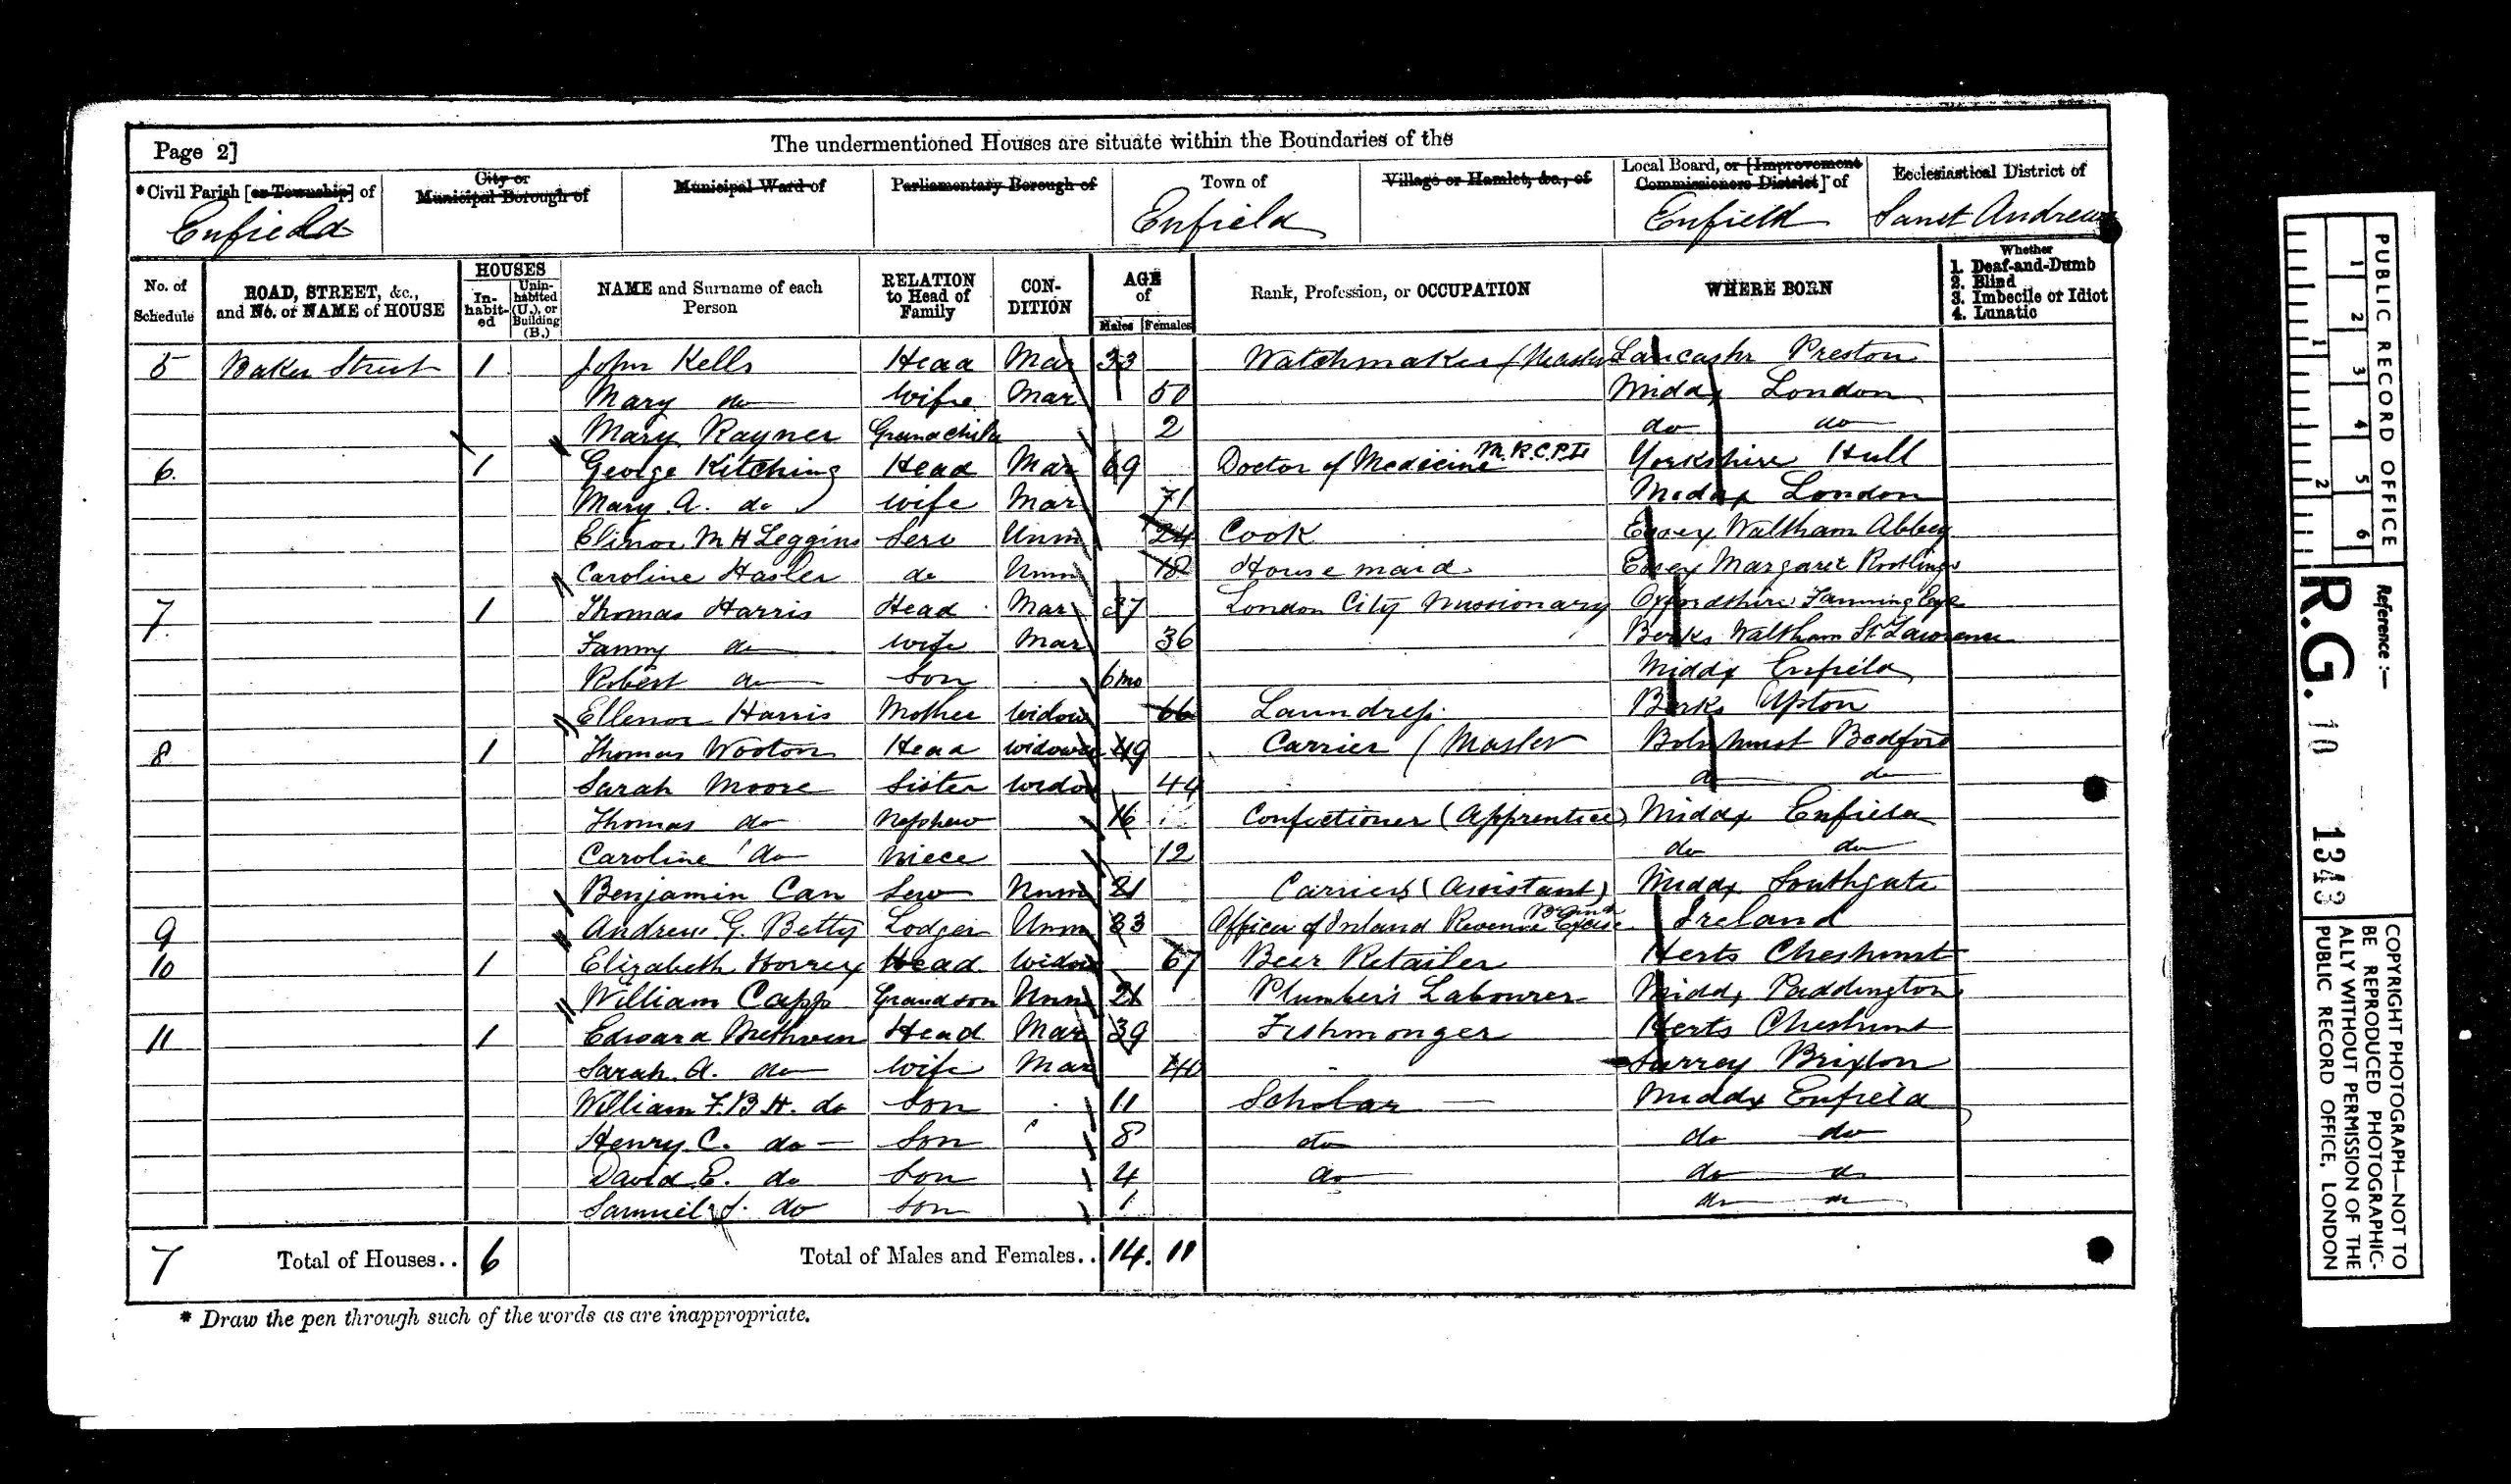 Page 2]
The undermentioned Houses are situate within the Boundaries of the
*Civil Parish [or Township] of
City or Municipal Borough of
Municipal Ward of
Parliamentary Borough of
Town of
Village or Hamlet, &c., of
Local Board, or [Improvement Commissioners District] of
Ecclesiastical District of
Enfield Enfield Enfield Sanct Andrews
No. of Schedule
ROAD, STREET, &c., and No. or NAME of HOUSE
HOUSES
In-habit-ed
Unin-habited (U.), or Building (B.)
NAME and Surname of each Person
RELATION to Head of Family
CON-DITION
AGE of
Males Females
Rank, Profession, or OCCUPATION
WHERE BORN
Whether
1. Deaf-and-Dumb
2. Blind
3. Imbecile or Idiot
4. Lunatic
5 Baker Street 1 John Kells Head Mar 33 Watchmaker (Master Lancashr Preston
Mary do wife Mar 50 Middx London
Mary Rayner Grandchild 2 do do
6. 1 George Kitching Head Mar 69 Doctor of Medicine M.R.C.P.L Yorkshire Hull
Mary A. do wife Mar 71 Middx London
Elinor M H Leggins Serv Unm 24 Cook Essex Waltham Abbey
Caroline Hasler do Unm 18 House maid Essex Margaret Roothings
7 1 Thomas Harris Head Mar 37 London City Missionary Oxfordshire
Fanny do wife Mar 36 Berks Waltham St. Lawrence
Robert do Son 6 mo Middx Enfield
Ellenor Harris Mother Widow 66 Laundress Berks Upton
8 1 Thomas Wooton Head Widower 49 Carrier (Master Bolnhurst Bedford
Sarah Moore Sister Widow 44 do do
Thomas do Nephew 16 Confectioner (Apprentice) Middx Enfield
Caroline do Niece 12 do do
Benjamin Can Serv Unm 21 Carriers (Assistant) Middx Southgate
9 Andrew G. Betty Lodger Unm 33 Officer of Inland Revenue Excise Ireland
10 1 Elizabeth Horrex Head Widow 67 Beer Retailer Herts Cheshunt
William Capp Grandson Unm 21 Plumber's Labourer Middx Paddington
11 1 Edward Methven Head Mar 39 Fishmonger Herts Cheshunt
Sarah A. do wife Mar 40 Surrey Brixton
William F.B.H. do Son 11 Scholar Middx Enfield
Henry C. do Son 8 do do do
David E. do Son 4 do do do
Samuel J. do Son 1 do do
7 Total of Houses.. 6 Total of Males and Females.. 14. 11
* Draw the pen through such of the words as are inappropriate.
PUBLIC RECORD OFFICE
1 2 3 4 5 6
1 2
Reference :—
R.G. 10 1343
COPYRIGHT PHOTOGRAPH—NOT TO
BE REPRODUCED PHOTOGRAPHIC-
ALLY WITHOUT PERMISSION OF THE
PUBLIC RECORD OFFICE, LONDON